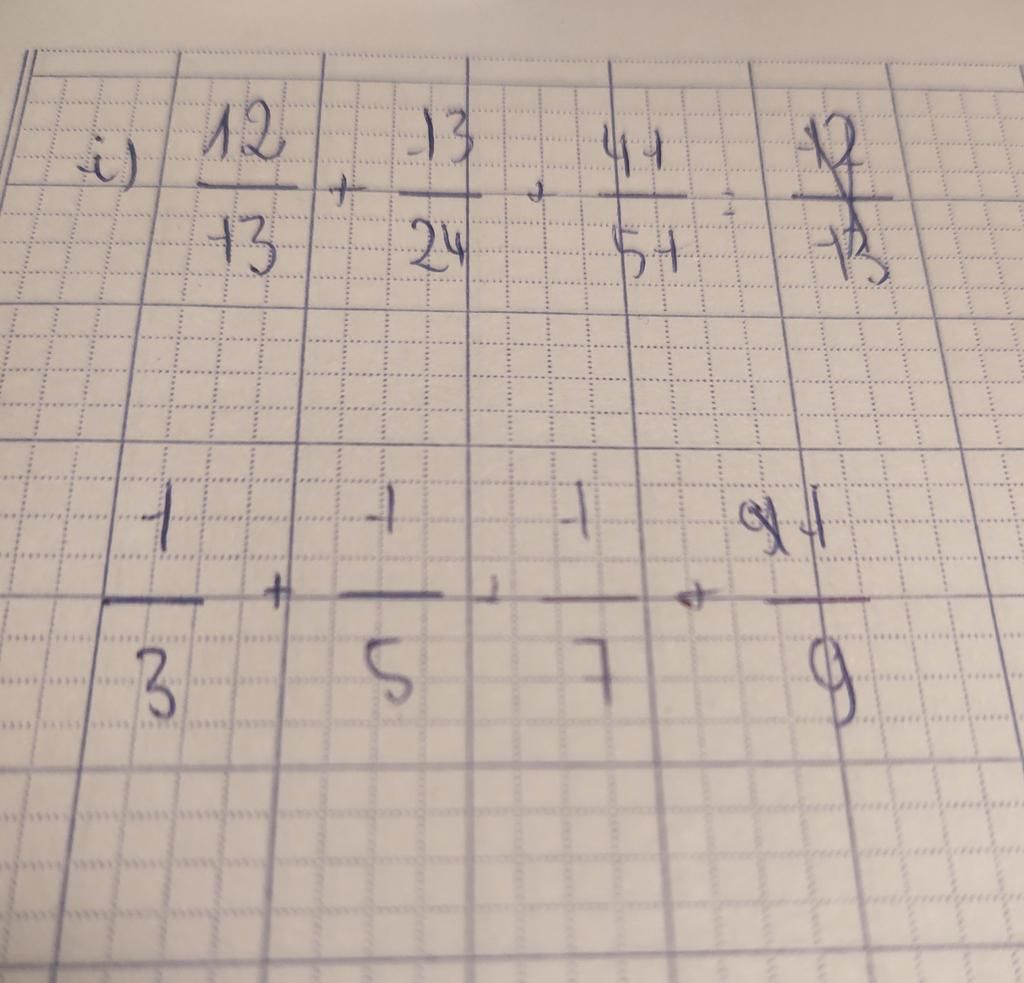 i) 12/13 + 13/24 + 41/51 = 12/13
1/3 + 1/5 + 1/7 + 1/9